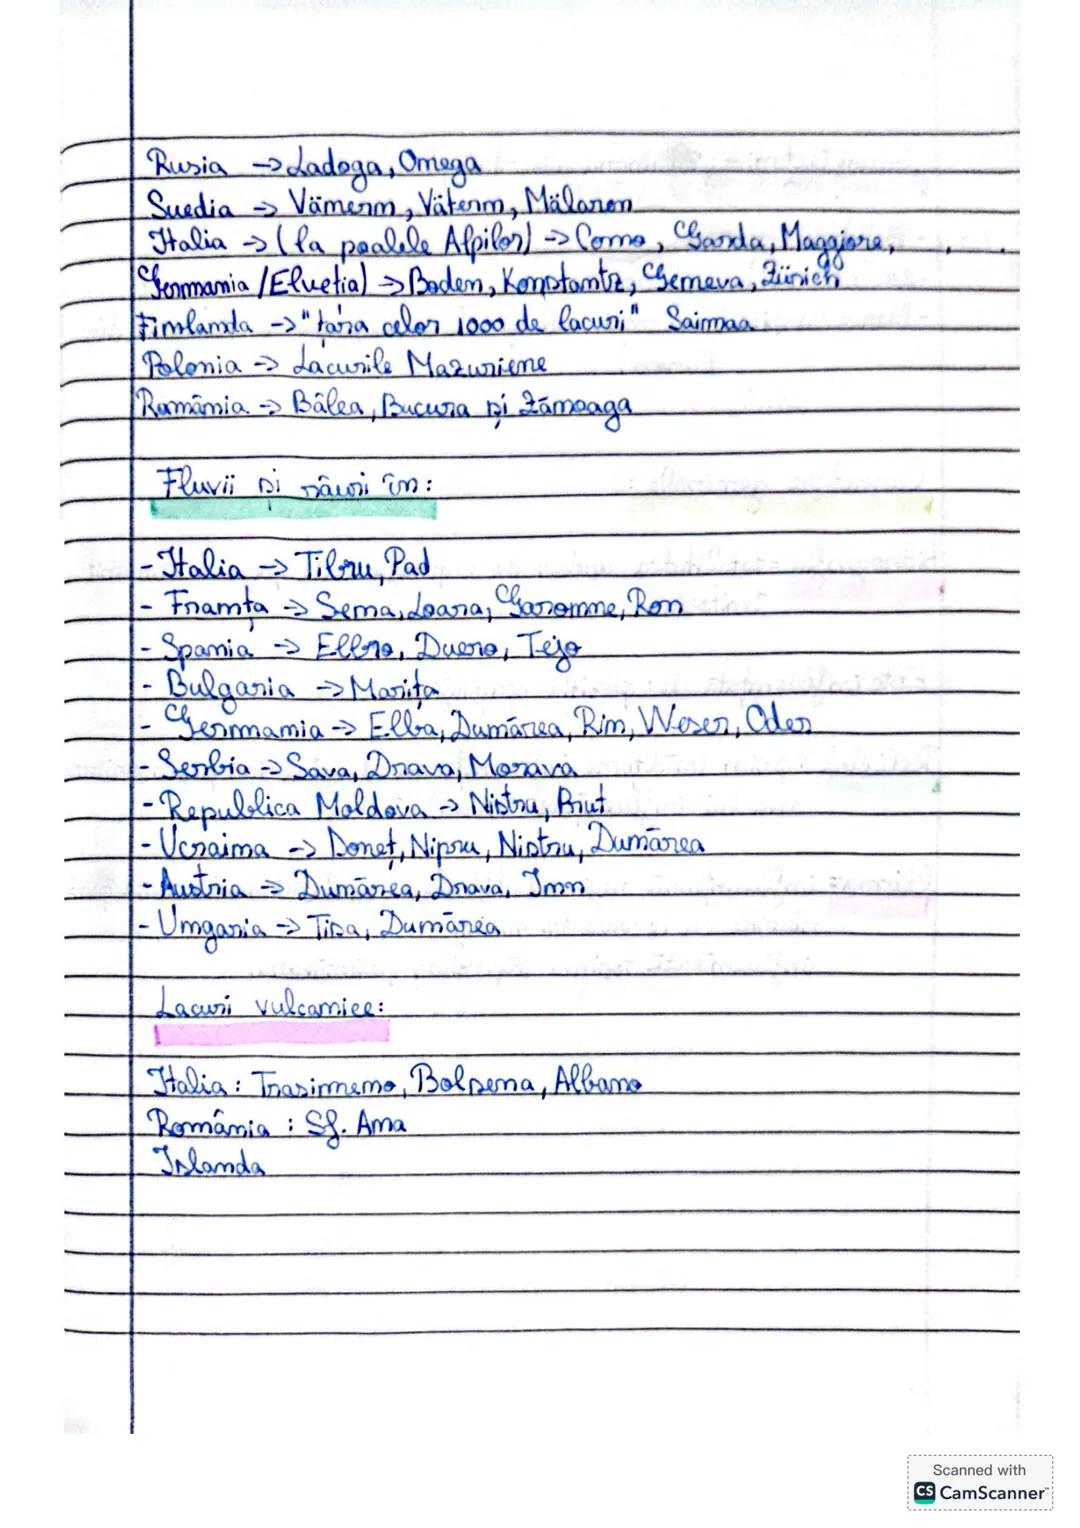 Rusia -> Ladoga, Onega
Suedia -> Vänern, Vätern, Mälaren
Italia -> (la poalele Alpilor) -> Como, Garda, Maggiore,
Germania /Elveția) -> Boden, Konstantz, Geneva, Zürich
Finlanda -> "țara celor 1000 de lacuri" Saimaa
Polonia -> Lacurile Mazuriene
România -> Bâlea, Bucura și Zănoaga
Fluvii și râuri în:
- Italia -> Tibru, Pad
- Franța -> Sena, Loara, Garonne, Ron
- Spania -> Ebro, Duero, Tejo
- Bulgaria -> Marița
- Germania -> Elba, Dunărea, Rin, Weser, Oder
- Serbia -> Sava, Drava, Morava
- Republica Moldova -> Nistru, Prut
- Ucraina -> Doneț, Nipru, Nistru, Dunărea
- Austria -> Dunărea, Drava, Inn
- Ungaria -> Tisa, Dunărea
Lacuri vulcanice:
Italia : Trasinneno, Bolsena, Albano
România : Sf. Ana
Islanda
Scanned with
CS CamScanner